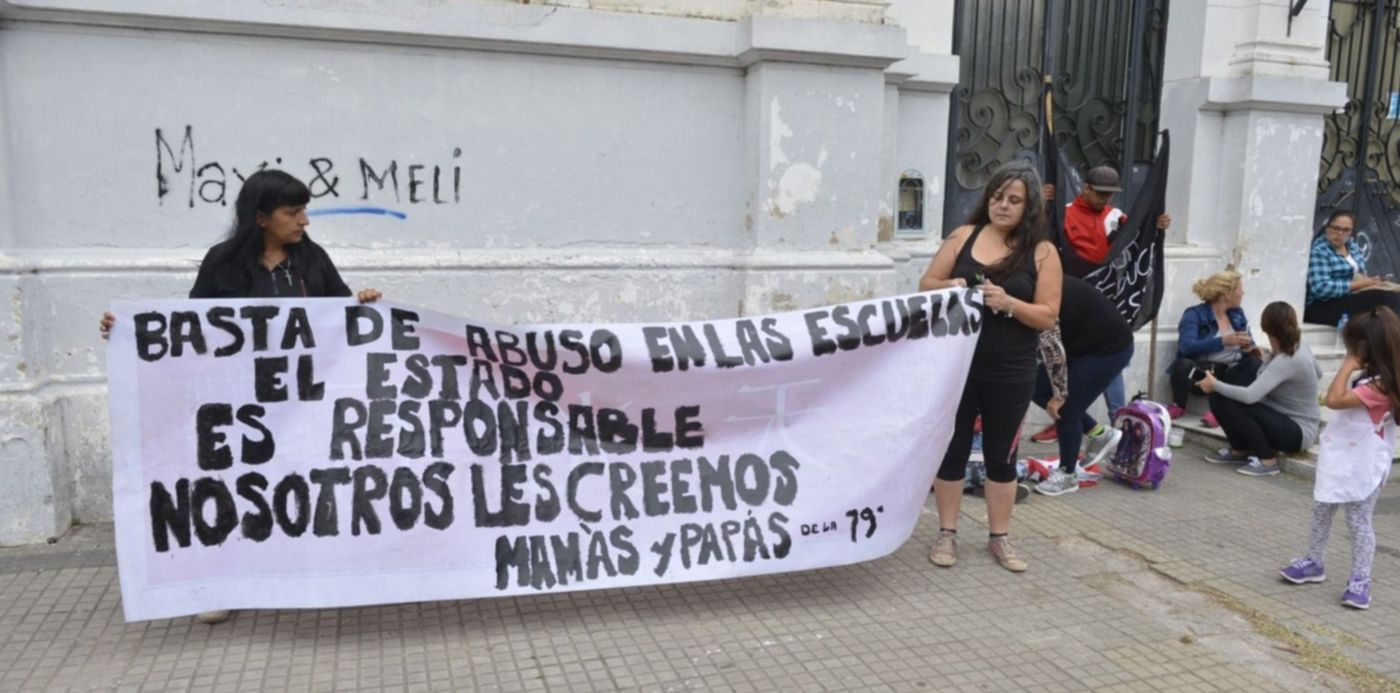 Maxi & MELI
BASTA DE ABUSO EN LAS ESCUELAS
EL ESTADO
ES RESPONSABLE
NOSOTROS LES CREEMOS
MAMÀS Y PAPÁS DE LA 79ª